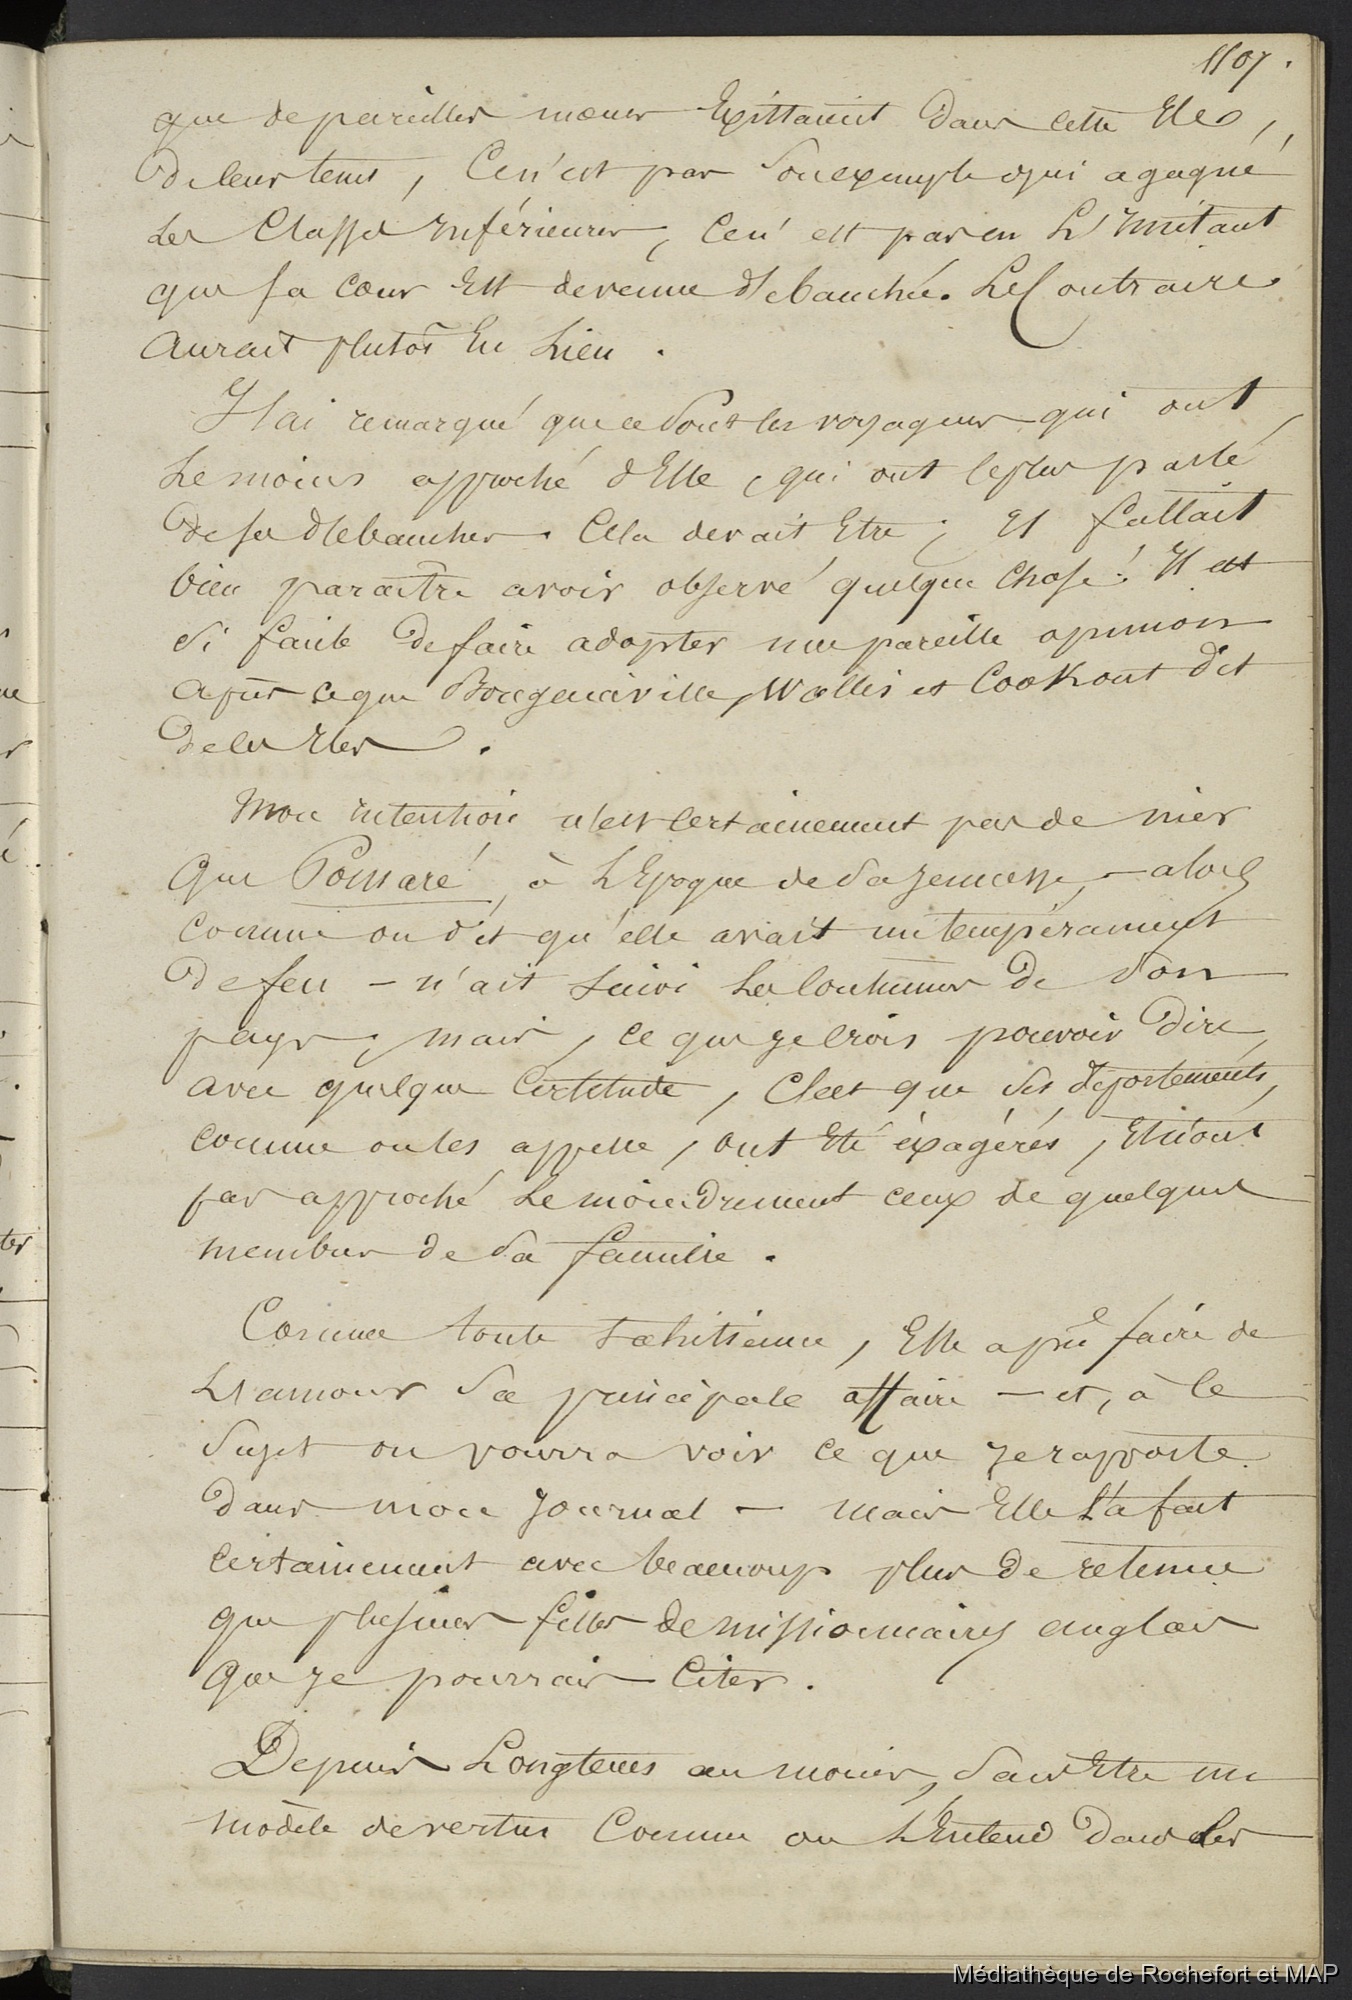 1107.
que de pareilles mœurs Existaient dans cette Ile,
de leur tems, Ce n'est pas son exemple qui a gagné
Les Classes inférieures, Ce n'est pas en L'imitant
que sa cour Est devenue débauchée. Le Contraire
Aurait plutôt Eu Lieu.
J'ai remarqué que ce sont les voyageurs qui ont
Le moins approché d'Elle, qui ont le plus parlé
de ses débauches. Cela devait Etre; Il fallait
bien paraître avoir observé quelque chose! Il est
si facile de faire adopter une pareille opinion
après ce que Bougainville, Wallis et Cook ont dit
de les Iles.
Mon intention n'est certainement pas de nier
Que Pomaré, à L'Epoque de sa jeunesse, - alors
comme on dit qu'elle avait un tempérament
de feu - n'ait suivi Les Coutumes de son
pays, mais, ce que je crois pouvoir dire
avec quelque Certitude, C'est que ses déportements,
comme on les appelle, ont Eté éxagérés, Et n'ont
pas approché Le moindrement ceux de quelques
membres de sa famille.
Comme toute tahitienne, Elle a pu faire de
L'amour sa principale affaire - et, à ce
sujet on pourra voir ce que je rapporte
dans mon Journal - mais Elle l'a fait
certainement avec beaucoup plus de retenue
que plusieurs filles de missionnaires anglais
que je pourrais Citer.
Depuis Longtems au moins, sans Etre un
modèle de vertus Comme on L'Entend dans les
Médiathèque de Rochefort et MAP